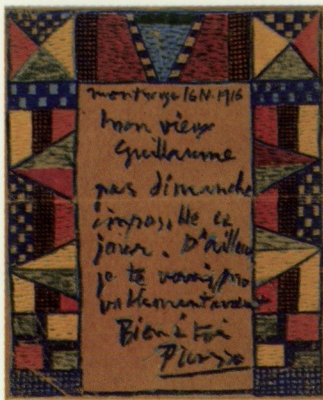 montrouge 16 N. 1916
mon vieux
Guillaume
pas dimanche
impossible ce
jour. D'ailleurs
je te verrai pro
bablement avant
Bien à toi
Picasso